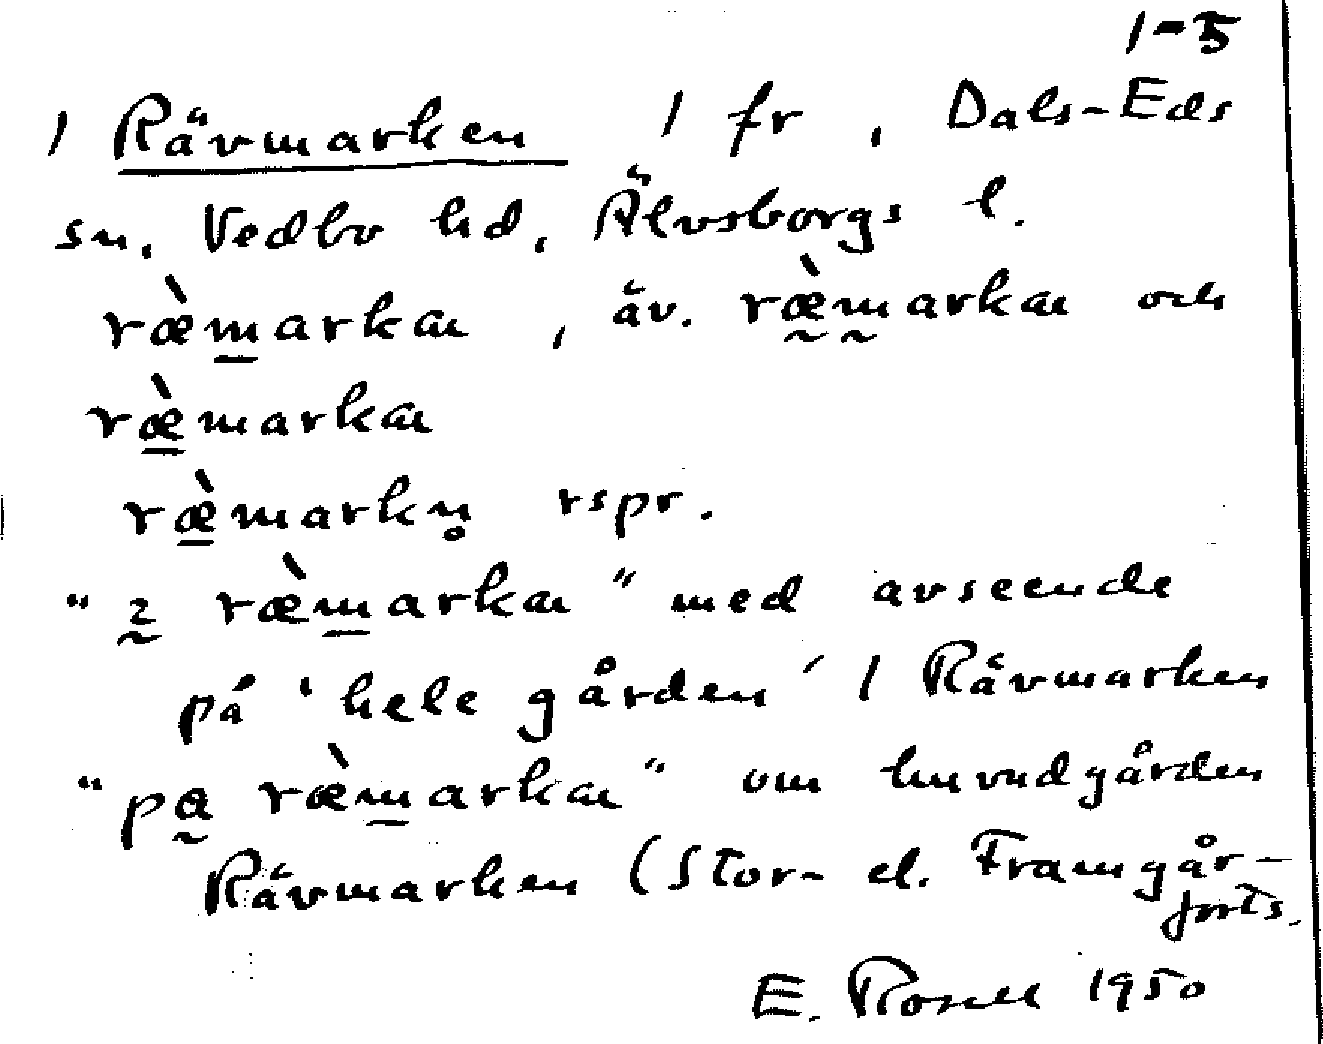 1-5
1 Rävmarken 1 fr, Dals-Eds
sn, Vedbo hd, Älvsborgs l.
ræ̀m̲arkæ, äv. ræ̰̀m̰arkæ och
ræ̲̀markæ
ræ̲̀markn̥ rspr.
"ḭ ræ̀m̲arkæ" med avseende
på 'hele gården' 1 Rävmarken
"pa̰ ræ̀m̲arkæ" om huvudgården
Rävmarken (Stor- el. Framgår-
forts.
E. Rosell 1950